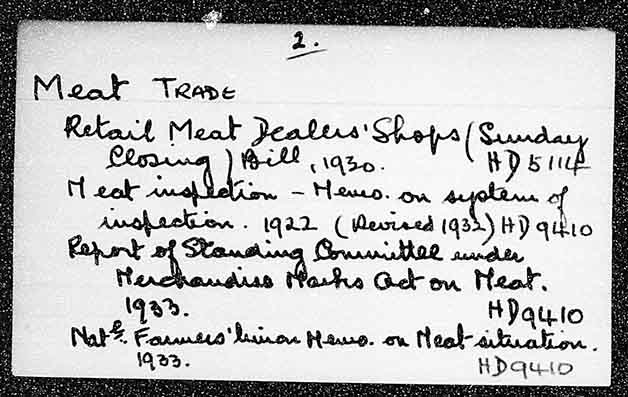 2.
Meat TRADE
Retail Meat Dealers' Shops (Sunday
Closing) Bill, 1930. HD5114
Meat inspection - Memo. on system of
inspection. 1922 (Revised 1932) HD9410
Report of Standing Committee under
Merchandise Marks Act on Meat.
1933. HD9410
Natl. Farmers' Union Memo. on Meat situation.
1933. HD9410